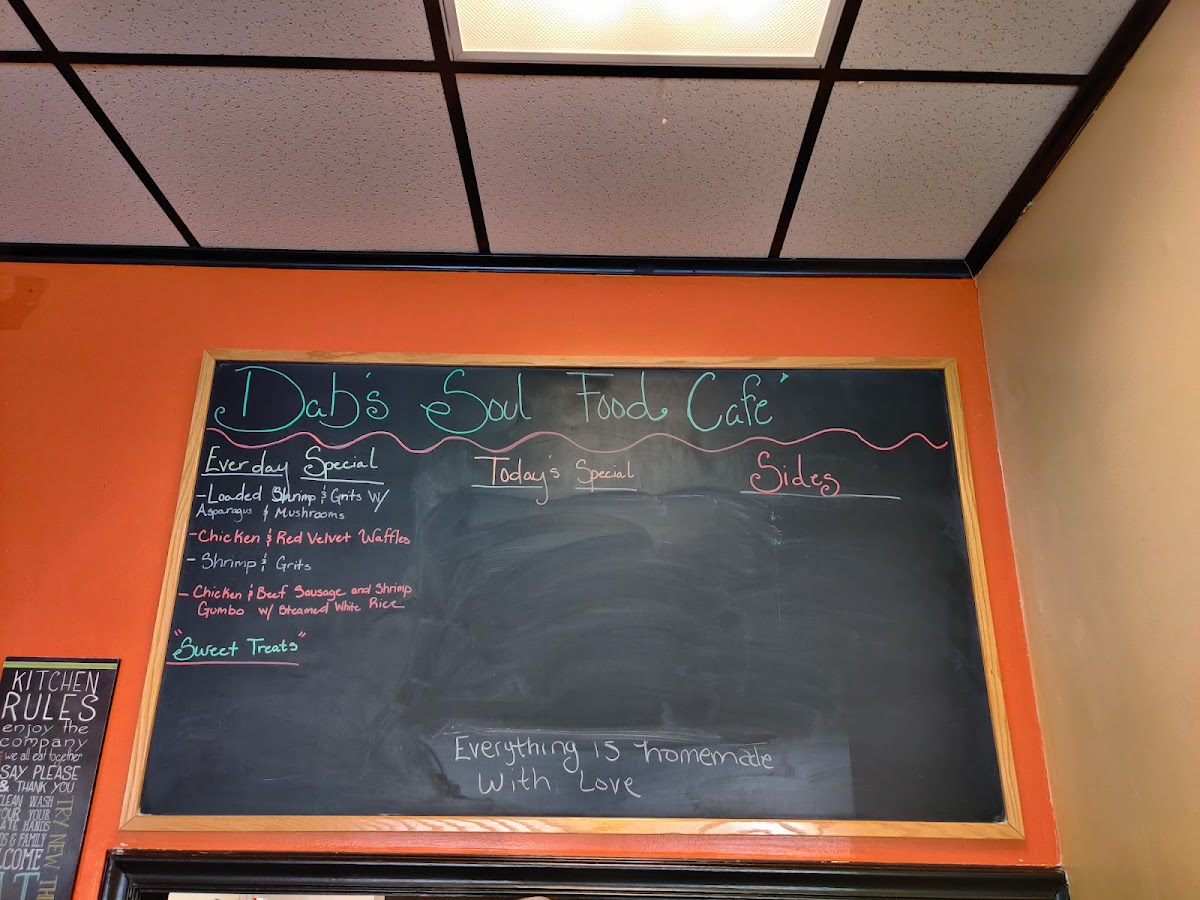 Dab's Soul Food Café
Everday Special
-Loaded Shrimp & Grits W/
Asparagus & Mushrooms
-Chicken & Red Velvet Waffles
- Shrimp & Grits
- Chicken & Beef Sausage and Shrimp
Gumbo w/ Steamed White Rice
"Sweet Treats"
Today's Special
Sides
Everything is homemade
With Love
KITCHEN
RULES
enjoy the
company
we all eat together
SAY PLEASE
& THANK YOU
CLEAN WASH
YOUR YOUR
HANDS
& FAMILY
TRY NEW